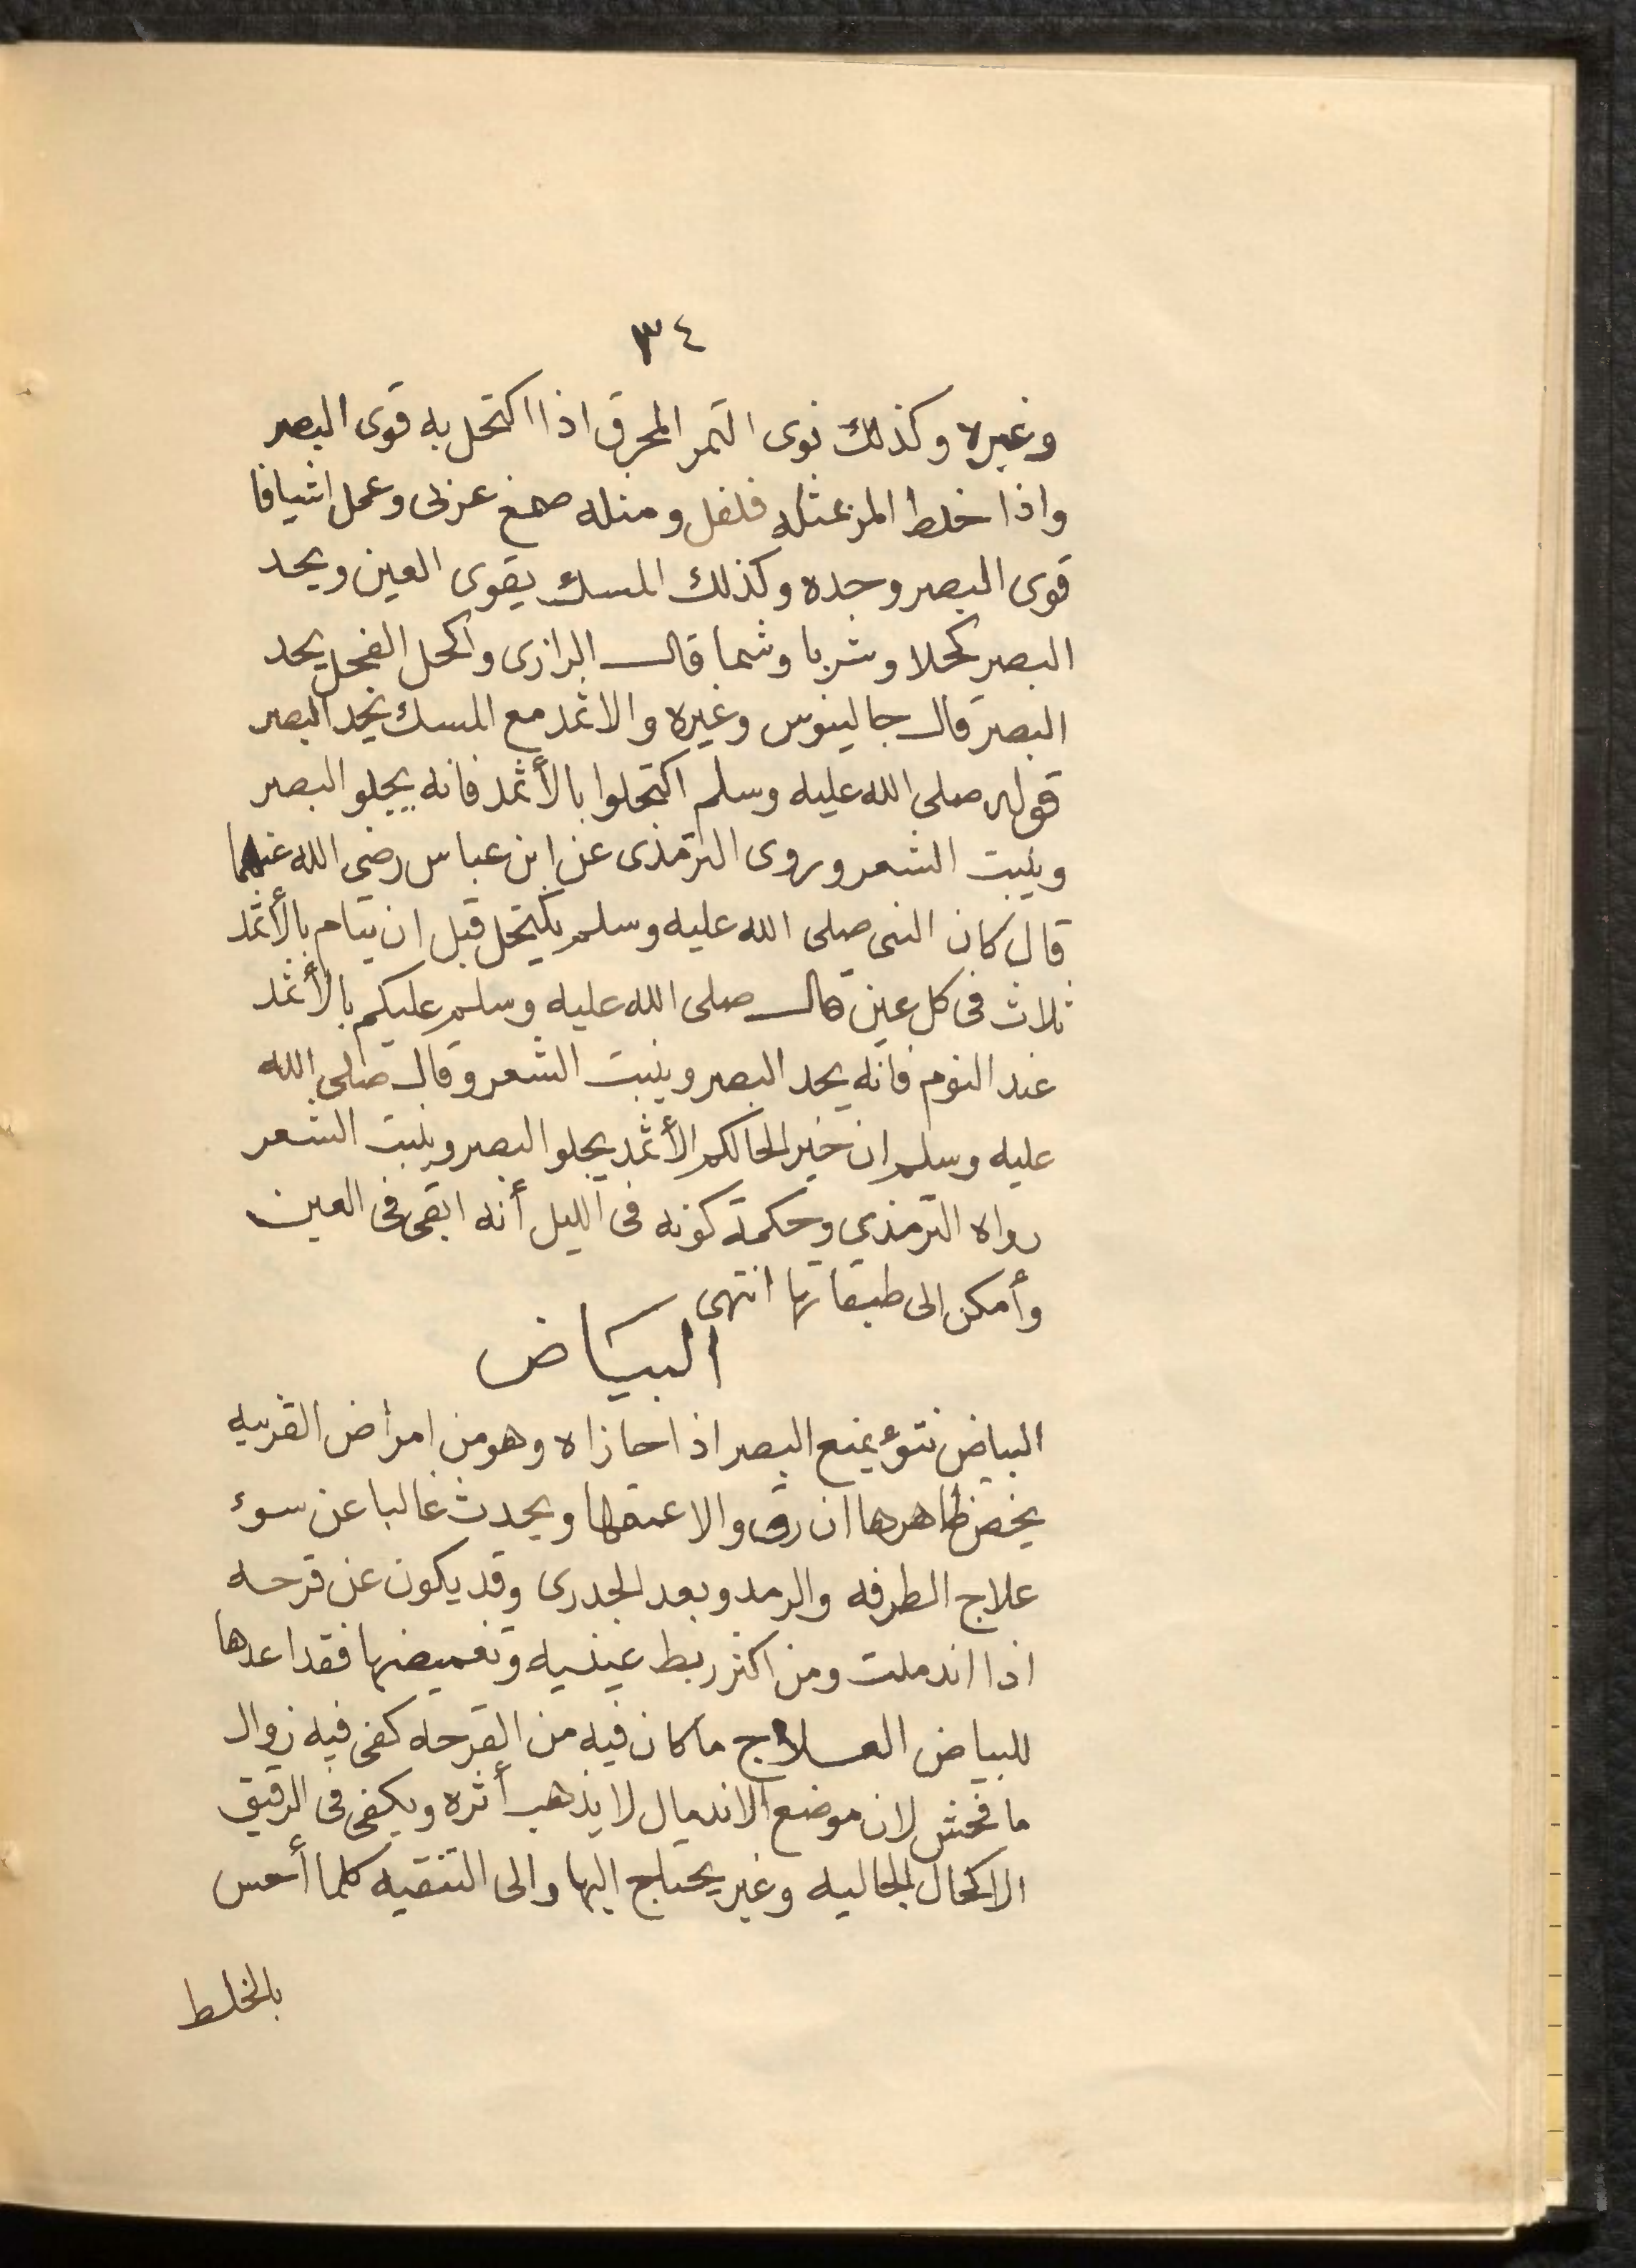 ٣٤
وغيره وكذلك نوى التمر المحرق اذا اكتحل به قوى البصر
واذا خلط المر بمثله فلفل ومثله صمغ عربى وعمل اشيافا
قوى البصر وحده وكذلك المسك يقوى العين ويحد
البصر كحلا وشربا وشما قال الرازى واكحل الفجل يحد
البصر قال جالينوس وغيره والاثمد مع المسك يحد البصر
قوله صلى الله عليه وسلم اكتحلوا بالأثمد فانه يجلو البصر
وينبت الشعر وروى الترمذى عن ابن عباس رضى الله عنهما
قال كان النبى صلى الله عليه وسلم يكتحل قبل ان ينام بالأثمد
ثلاث فى كل عين قال صلى الله عليه وسلم عليكم بالأثمد
عند النوم فانه يحد البصر وينبت الشعر وقال صلى الله
عليه وسلم ان خير اكحالكم الأثمد يجلو البصر وينبت الشعر
رواه الترمذي وحكمة كونه فى الليل أنه ابقى فى العين
وأمكن الى طبقاتها انتهى
البياض
البياض نتوء يمنع البصر اذا حازاه وهو من امراض القرنيه
يخص ظاهرها ان رق والا عمقها ويحدث غالبا عن سوء
علاج الطرفه والرمد وبعد الجدرى وقد يكون عن قرحه
اذا اندملت ومن اكثر ربط عينيه وتغميضها فقد اعدها
للبياض العلاج ما كان فيه من القرحه كفى فيه زوال
ما فحش لان موضع الاندمال لا يذهب أثره ويكفى فى الرقيق
الاكحال الجاليه وغير يحتاج اليها والى التنقيه كلما أحس
بالخلط